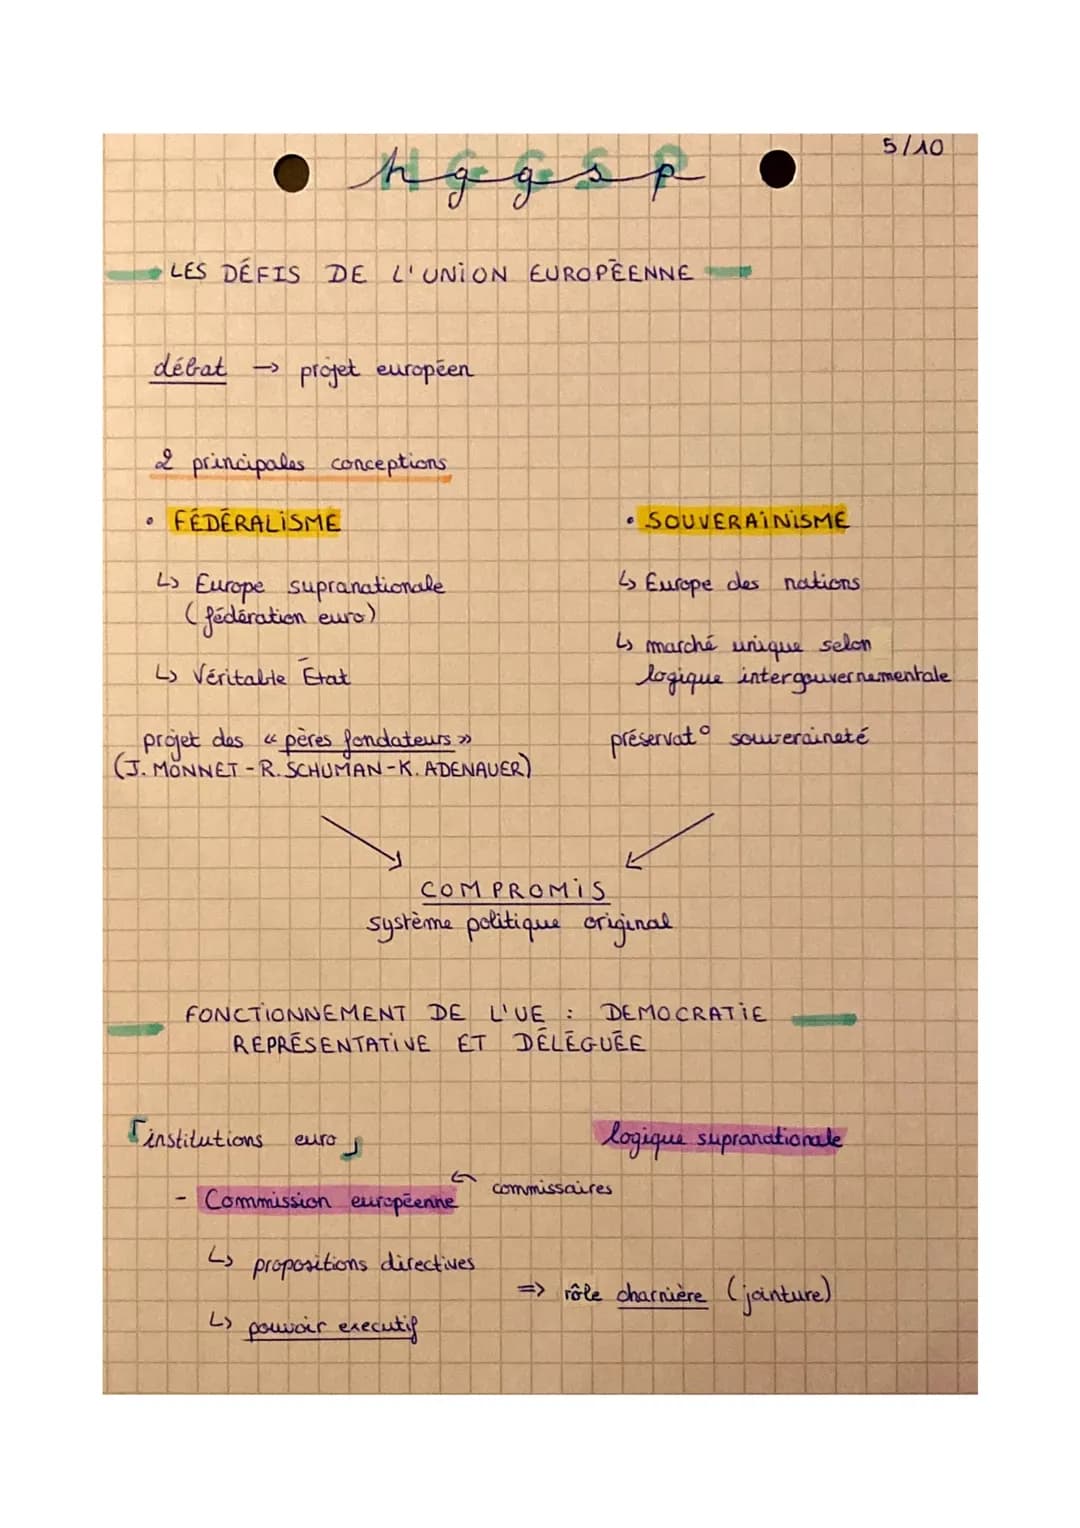 5/10
hggsp
LES DÉFIS DE L'UNION EUROPÉENNE
débat → projet européen
2 principales conceptions
• FÉDÉRALISME
↳ Europe supranationale
(fédération euro)
↳ Véritable État
projet des « pères fondateurs »
(J. MONNET - R. SCHUMAN - K. ADENAUER)
• SOUVERAINISME
↳ Europe des nations
↳ marché unique selon
logique intergouvernementale
préservat° souveraineté
COMPROMIS
système politique original
FONCTIONNEMENT DE L'UE : DEMOCRATIE
REPRÉSENTATIVE ET DÉLÉGUÉE
institutions euro
logique supranationale
- Commission européenne ← commissaires
↳ propositions directives
↳ pouvoir executif
=> rôle charnière (jointure)